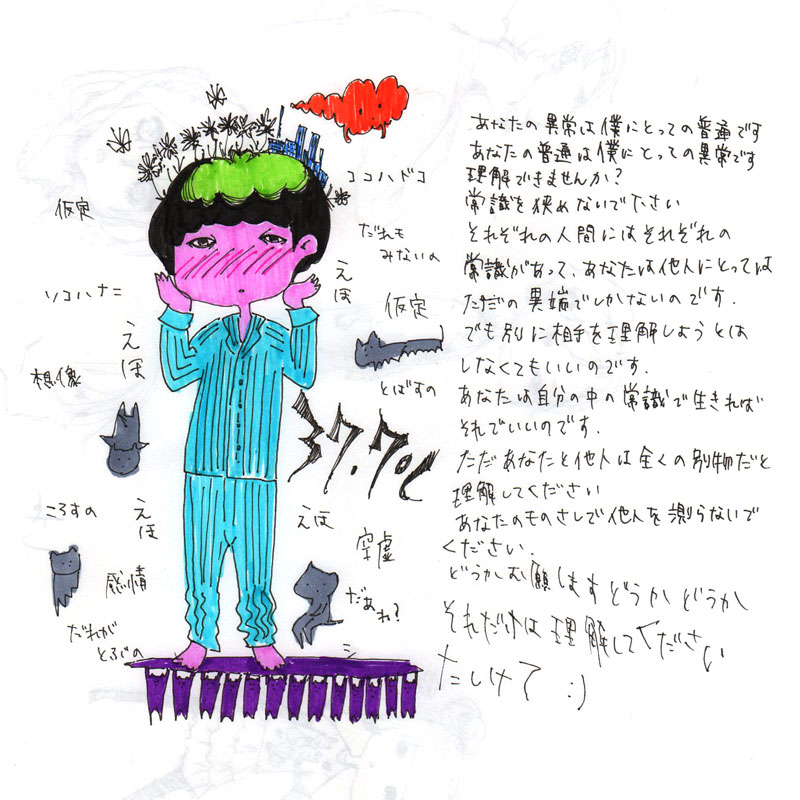 あなたの異常は僕にとっての普通です
あなたの普通は僕にとっての異常です
理解できませんか?
常識を狭めないでください
それぞれの人間にはそれぞれの
常識があって、あなたは他人にとっては
ただの異端でしかないのです.
でも別に相手を理解しようとは
しなくてもいいのです.
あなたは自分の中の常識で生きれば
それでいいのです.
ただあなたと他人は全くの別物だと
理解してください
あなたのものさしで他人を測らないで
ください.
どうかお願しますどうかどうか
それだけは理解してください
たしけて :)
ココハドコ
仮定
だれも
みないの
えほ
ソコハナニ
仮定
えほ
想像
とばすの
37.7℃
ころすの
えほ
えほ
空虚
感情
だあれ?
だれが
とるの
シ